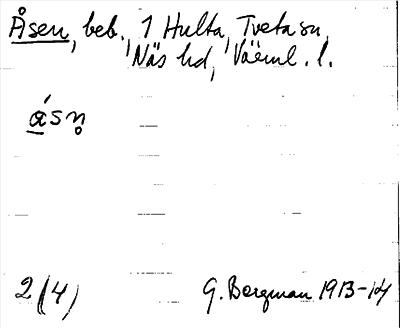 Åsen, beb., 1 Hulta, Tveta sn,
Näs hd, Värml. l.
ásn̥
2 (4) G. Bergman 1913-14